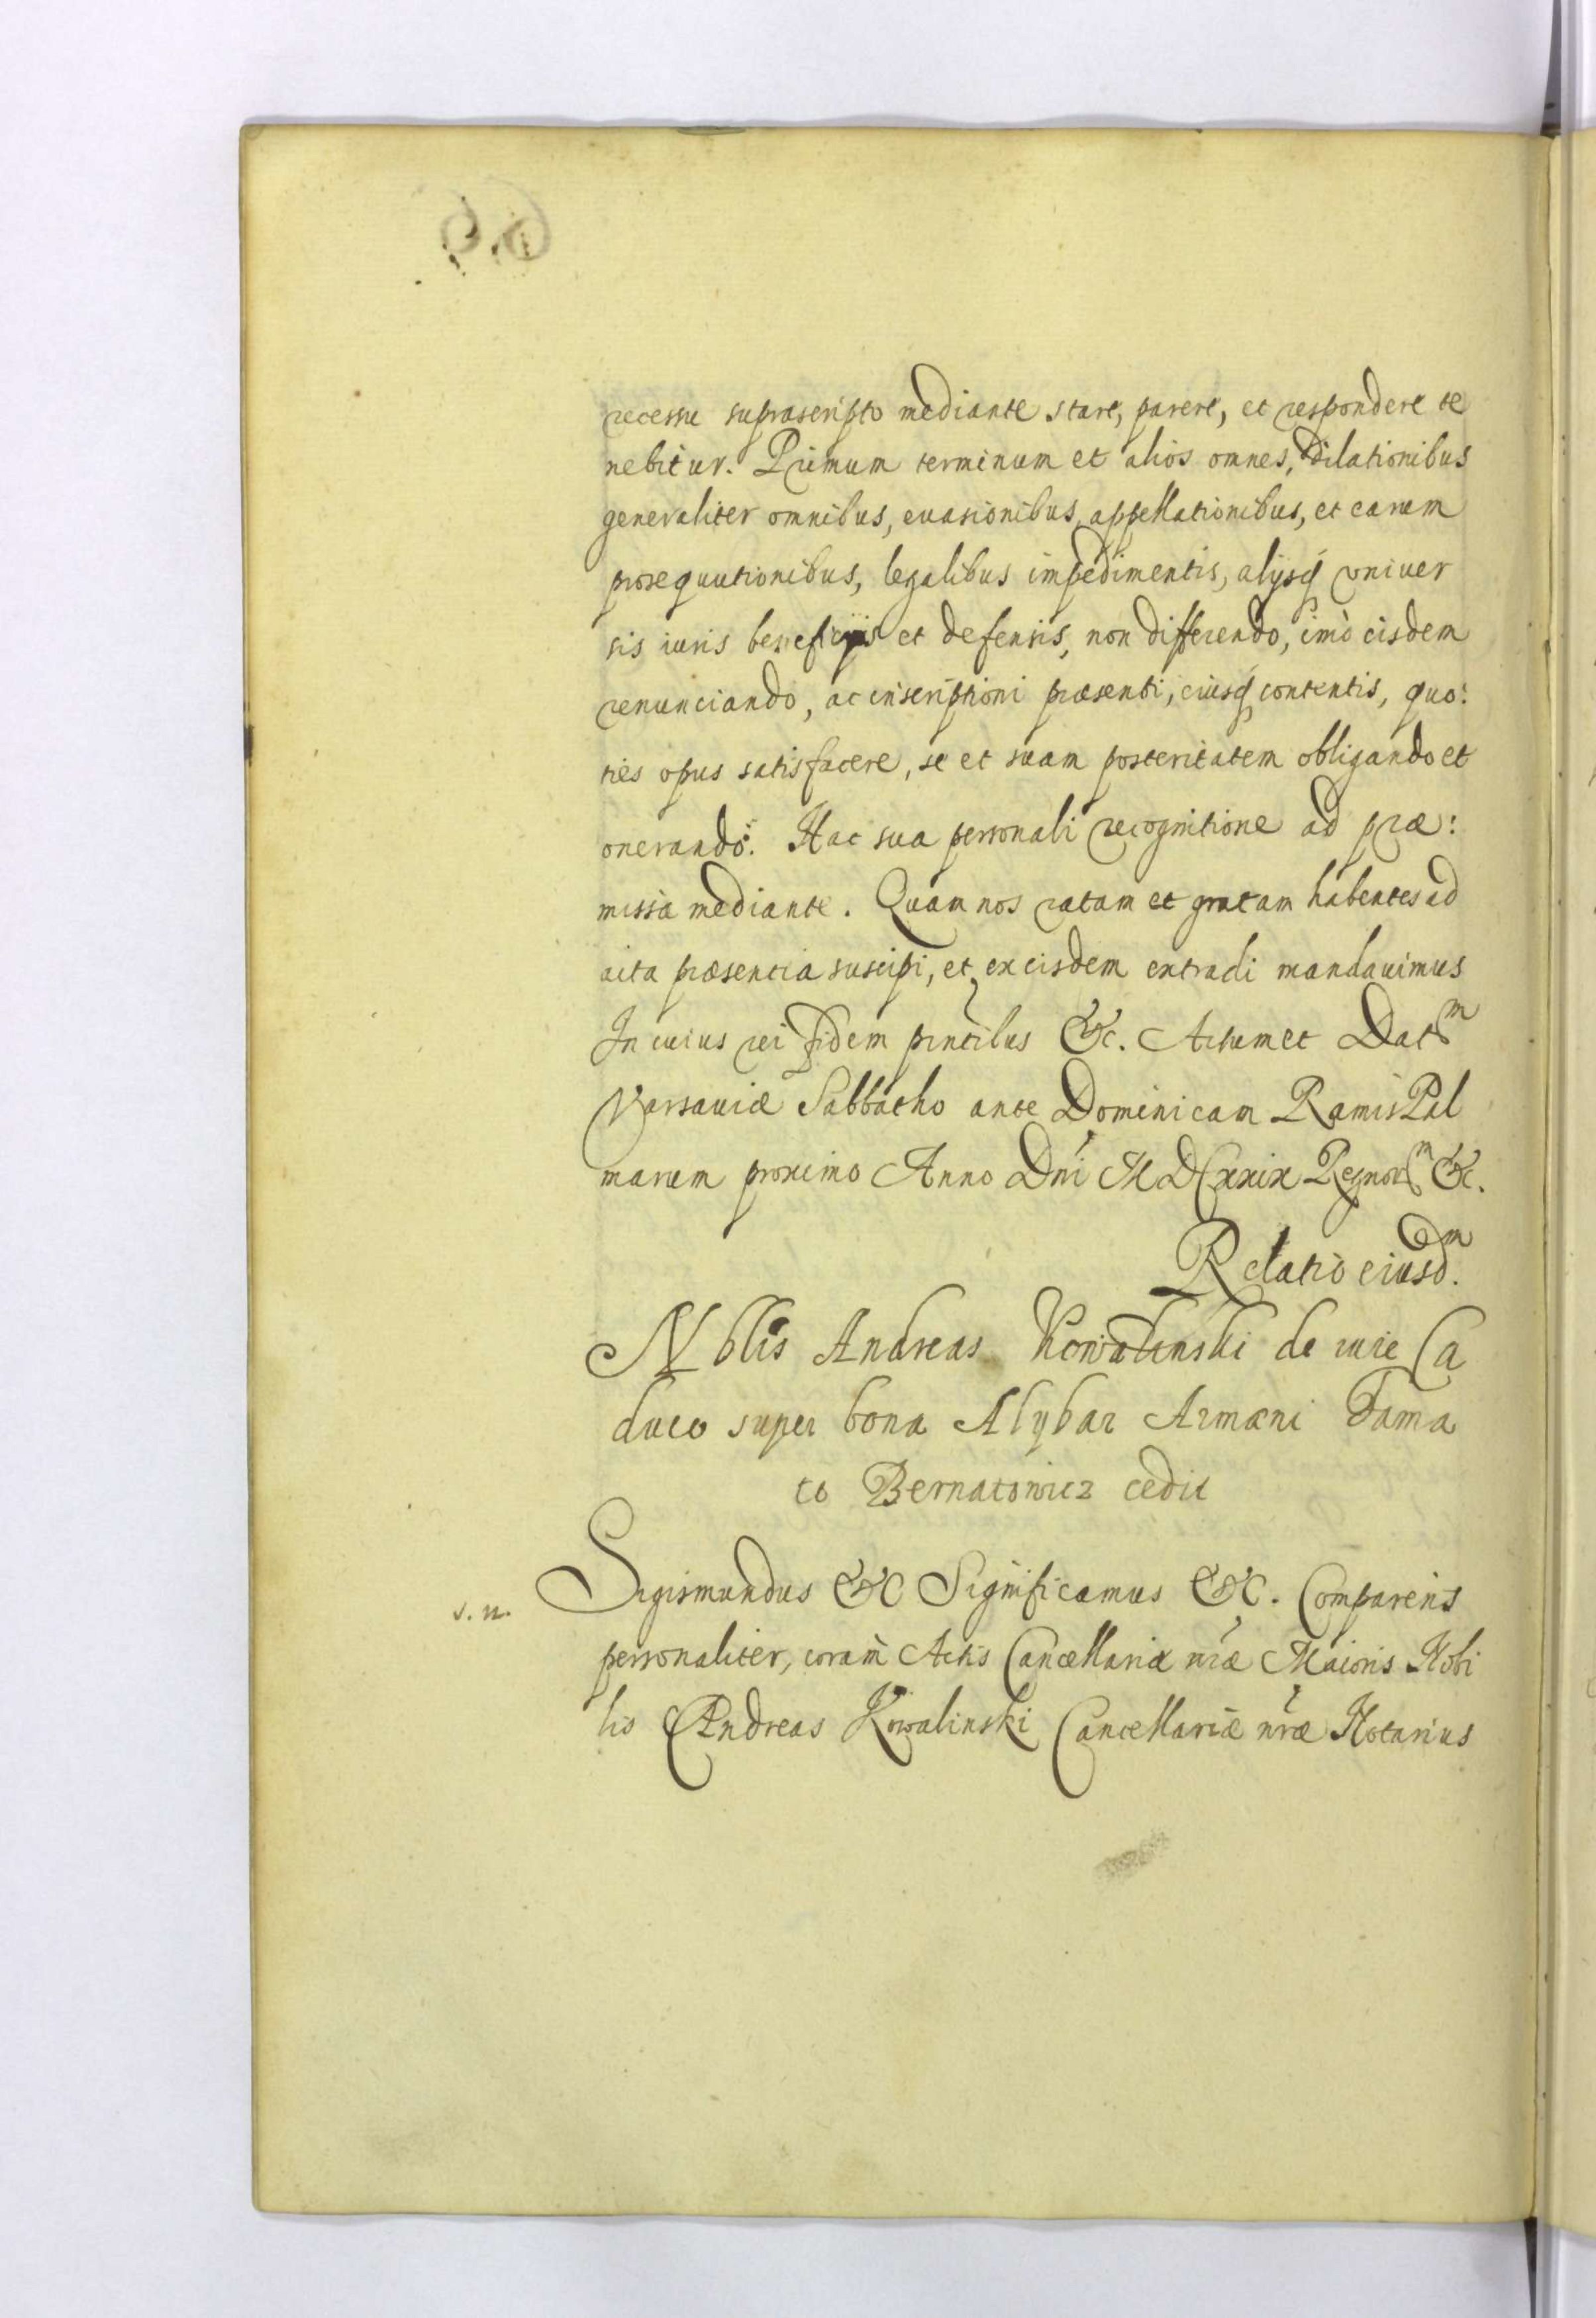 recessu suprascripto mediante stare, parere, et respondere te
nebitur. Primum terminum et alios omnes, dilationibus
generaliter omnibus, euasionibus, appellationibus, et earum
prosequutionibus, legalibus impedimentis, alijsq́ vniuer
sis iuris beneficijs et defensis, non differendo, imò eisdem
renunciando, ac inscriptioni præsenti, eiusq́ contentis, quo:
ties opus satisfacere, se et suam posteritatem obligando et
onerando. Hac sua personali recognitione ad præ:
missa mediante. Quam nos ratam et gratam habentes ad
acta præsentia suscipi, et ex eisdem extradi mandauimus
In cuius rei fidem pñtibus &c. Actum et Datm
Varsauiæ Sabbatho ante Dominicam Ramis Pal
marum proximo Anno Dñi MDCxxix Regnorm &c.
Relatio eiusdm.
Nblis Andreas Kowalinski de iure Ca
duco super bona Alybar Armæni Dama
to Bernatowicz cedit
s. n.
Sigismundus &c Significamus &c. Comparens
personaliter, coram Actis Cancellariæ nræ Maioris Nobi
lis Andreas Kowalinski Cancellariæ nræ Notarius